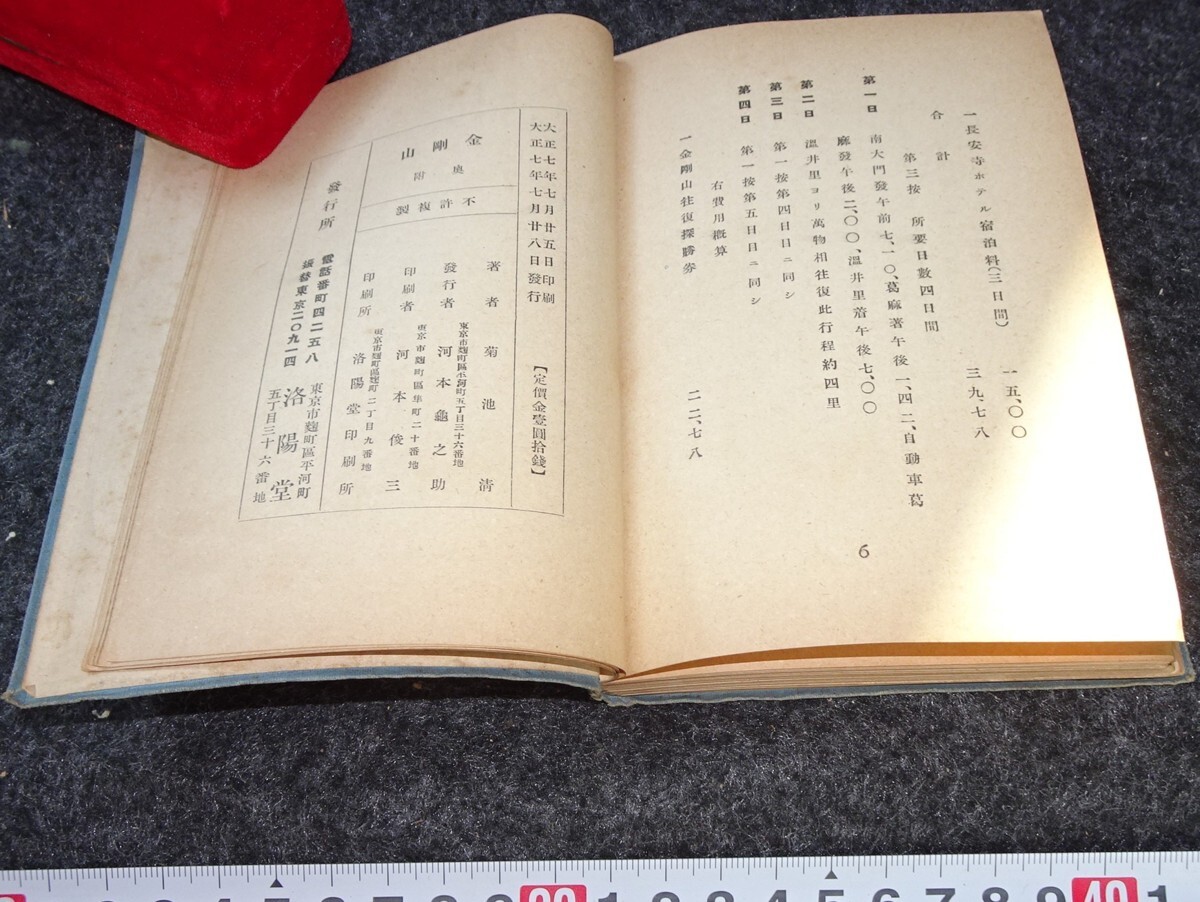 一長安寺ホテル宿泊料(三日間) 一五、〇〇
合計 三九、七八
第三按 所要日數四日間
第一日 南大門發午前七、一〇、葛麻著午後一、四二、自動車葛
麻發午後二、〇〇、溫井里着午後七、〇〇
第二日 溫井里ヨリ萬物相往復此行程約四里
第三日 第一按第四日目ニ同シ
第四日 第一按第五日目ニ同シ
右費用概算
一金剛山往復探勝券 二二、七八
6
大正七年七月廿五日印刷
大正七年七月廿八日發行
【定價金壹圓拾錢】
金剛山
奥附
不許複製
著者 菊池清
東京市麹町區平河町五丁目三十六番地
發行者 河本龜之助
東京市麹町區隼町二十番地
印刷者 河本俊三
東京市麹町區麹町二丁目九番地
印刷所 洛陽堂印刷所
發行所
東京市麹町區平河町
五丁目三十六番地
洛陽堂
電話番町四二五八
振替東京二〇九一四
20
1 2 3 4 5 6 7 8 9
40
1